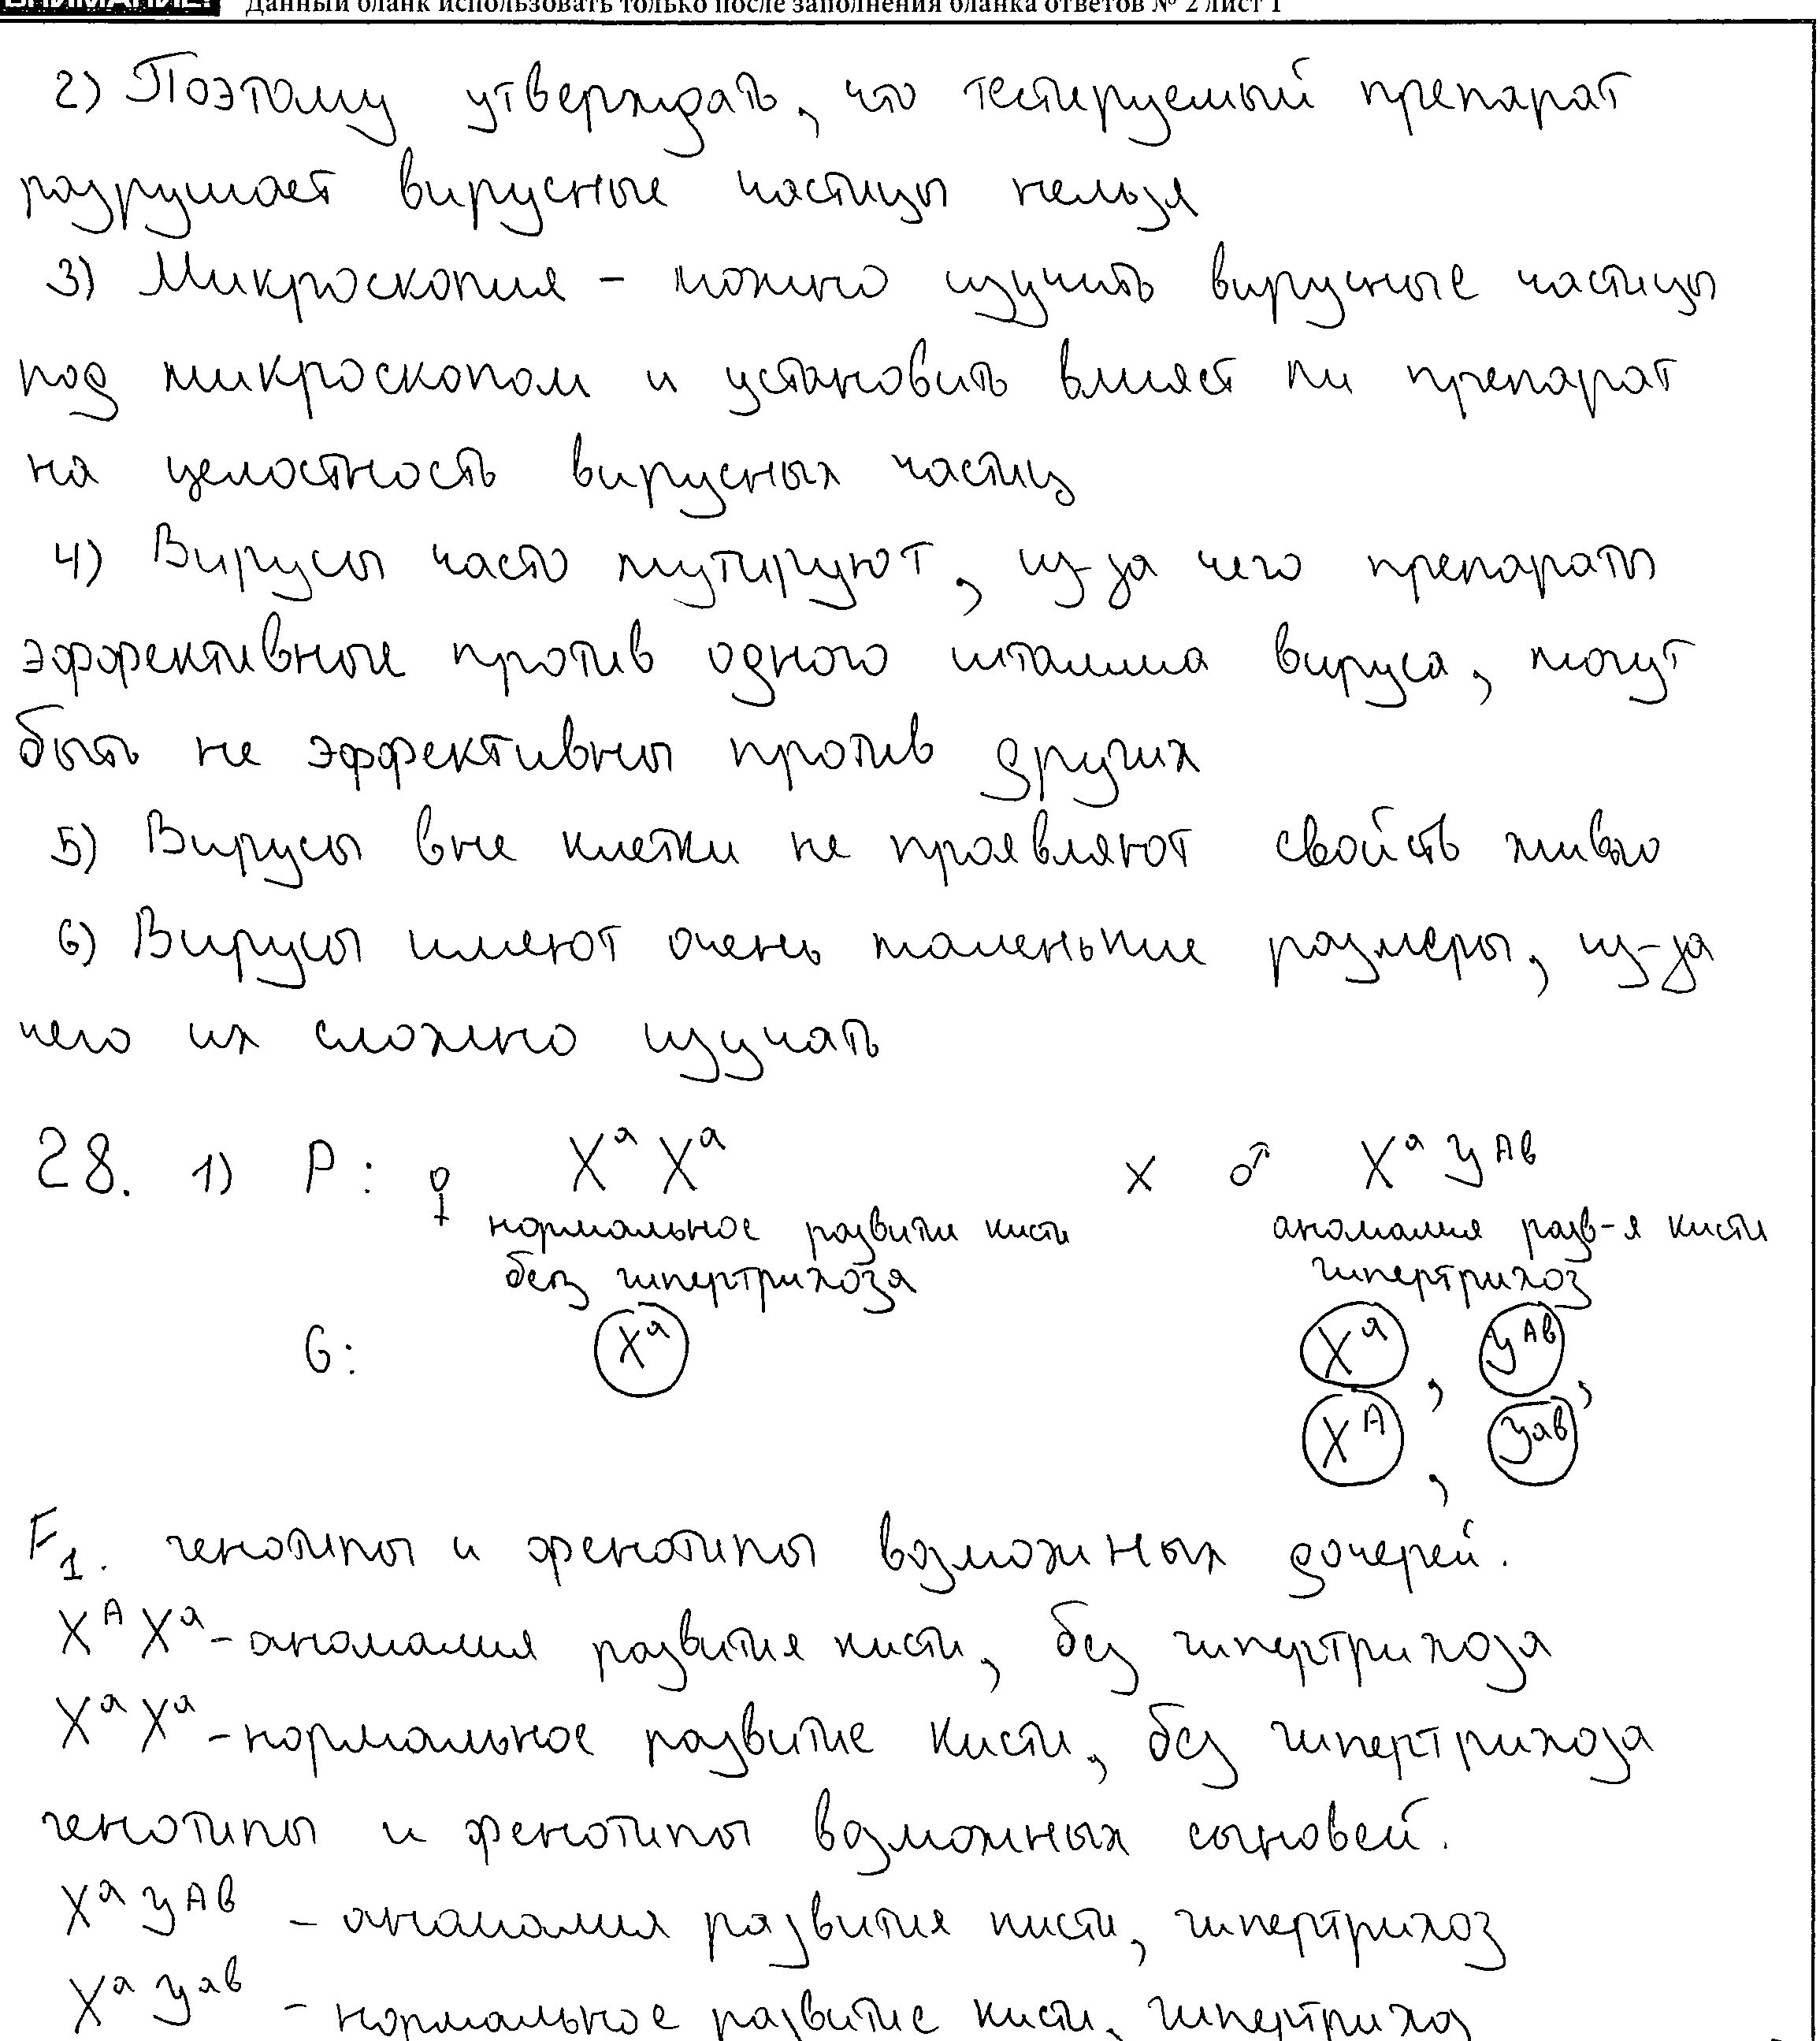 ВНИМАНИЕ! Данный бланк использовать только после заполнения бланка ответов № 2 лист 1
2) Поэтому утверждать, что тестируемый препарат
разрушает вирусные частицы нельзя
3) Микроскопия - можно изучить вирусные частицы
под микроскопом и установить влияет ли препарат
на целостность вирусных частиц
4) Вирусы часто мутируют, из-за чего препараты
эффективные против одного штамма вируса, могут
быть не эффективны против других
5) Вирусы вне клетки не проявляют свойств живого
6) Вирусы имеют очень маленькие размеры, из-за
чего их сложно изучать
28. 1) P: ♀ Xᵃ Xᵃ x ♂ Xᵃ Yᴬᵇ
нормальное развитие кисти аномалия разв-я кисти
без гипертрихоза гипертрихоз
G: Xᵃ Xᵃ, Yᴬᵇ,
Xᴬ, Yᵃᵇ
F₁. генотипы и фенотипы возможных дочерей.
Xᴬ Xᵃ - аномалия развития кисти, без гипертрихоза
Xᵃ Xᵃ - нормальное развитие кисти, без гипертрихоза
генотипы и фенотипы возможных сыновей.
Xᵃ Yᴬᵇ - аномалия развития кисти, гипертрихоз
Xᵃ Yᵃᵇ - нормальное развитие кисти, гипертрихоз